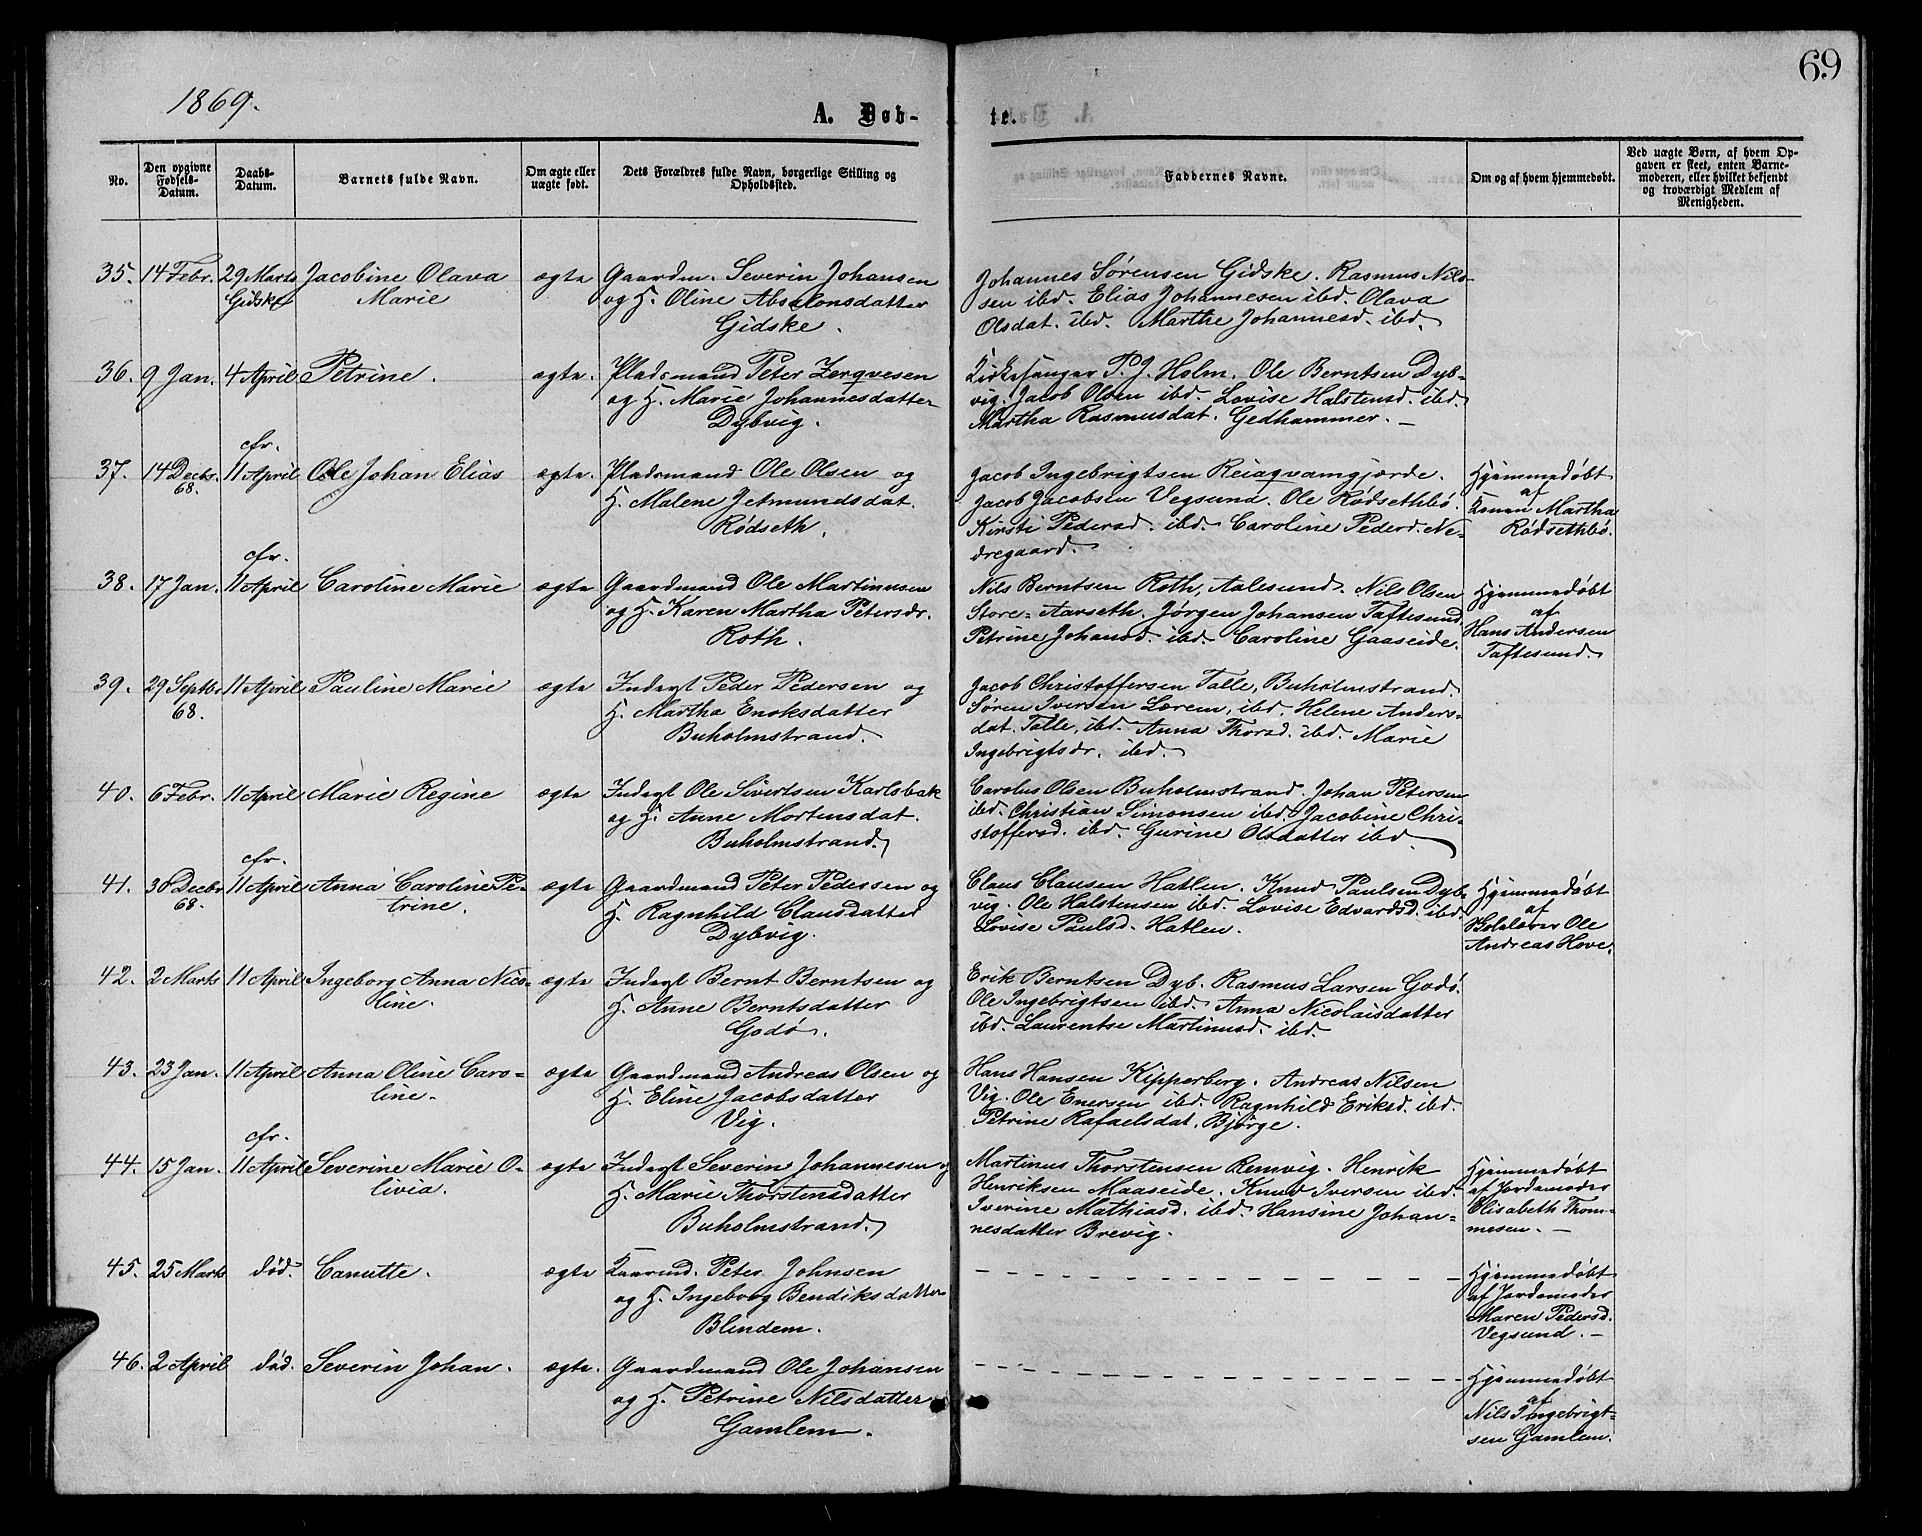 69
1869.
A. Døb-
te.
No.
Den opgivne Fødsels-Datum.
Daabs-Datum.
Barnets fulde Navn.
Om ægte eller uægte født.
Dets Forældres fulde Navn, borgerlige Stilling og Opholdssted.
Faddernes Navne.
Om og af hvem hjemmedøbt.
Ved uægte Børn, af hvem Op-
gaven er skeet, enten Barne-
moderen, eller hvilket bekjendt
og troværdigt Medlem af
Menigheden.
35. 14 Febr. 29 Marts Jacobine Olava ægte Gaardm. Severin Johansen
Gidske Marie og H. Oline Absalonsdatter
Gidske.
Johannes Sørensen Gidske. Rasmus Nils-
sen ibd. Elias Johannesen ibd. Olava
Olsdat. ibd. Marthe Johannesd. ibd.
36. 9 Jan. 4 April Petrine. ægte. Pladsmand Peter
og H. Marie Johannesdatter
Dybvig.
Kirkesanger P. J. Holm. Ole Berntsen Dyb-
vig. Jacob Olsen ibd. Lovise Halstensd. ibd.
Martha Rasmusdat. Gedhammer. —
cfr.
37. 14 Decbr. 11 April Ole Johan Elias ægte. Pladsmand Ole Olsen og
68. H. Malene Jetmundsdat.
Rødseth.
Jacob Ingebrigtsen
Jacob Jacobsen Vegsund. Ole Rødsethbø.
Kirsti Pedersd. ibd. Caroline Pedersd. Ne-
dregaard.
Hjemmedøbt
af
Konen Martha
Rødsethbø.
cfr.
38. 17 Jan. 11 April Caroline Marie ægte Gaardmand Ole Martinussen
og H. Karen Martha Petersdr.
Roth.
Nils Berntsen Roth, Aalesund. Nils Olsen
Store-Aarseth. Jørgen Johansen Taftesund
Petrine Johansd. ibd. Caroline Gaaseide.
Hjemmedøbt
af
Hans Andersen
Taftesund.
39. 29 Septbr. 11 April Pauline Marie ægte Inderst Peder Pedersen og
68. H. Martha Enoksdatter
Buholmstrand.
Jacob Christoffersen Talle, Buholmstrand.
Søren Iversen Lorem, ibd. Helene Anders-
dat. Talle, ibd. Anna Thorsd. ibd. Marie
Ingebrigtsdr. ibd.
40. 6 Febr. 11 April Marie Regine ægte Inderst Ole Sivertsen Karlsbak
og H. Anne Mortensdat.
Buholmstrand.
Carolus Olsen Buholmstrand. Johan Petersen
ibd. Christian Simonsen ibd. Jacobine Chri-
stoffersd. ibd. Gurine Olsdatter ibd.
cfr.
41. 30 Decbr 11 April Anna Caroline Pe- ægte Gaardmand Peter Pedersen og
68. trine. H. Ragnhild Clausdatter
Dybvig.
Claus Clausen Hatlen. Knud Paulsen Dyb-
vig. Ole Halstensen ibd. Lovise Edvardsd. ibd.
Lovise Paulsd. Hatlen.
Hjemmedøbt
af
Skolelærer Ole
Andreas Hove.
42. 2 Marts 11 April Ingeborg Anna Nico- ægte Inderst Bernt Berntsen og
line. H. Anne Berntsdatter
Godø.
Erik Berntsen Dyb. Rasmus Larsen Godø.
Ole Ingebrigtsen ibd. Anna Nicolaisdatter
ibd. Laurentse Martinusd. ibd.
43. 23 Jan. 11 April Anna Oline Caro- ægte Gaardmand Andreas Olsen og
line. H. Eline Jacobsdatter
Vig.
Hans Hansen Kipperberg. Andreas Nilsen
Vig. Ole Enersen ibd. Ragnhild Eriksd. ibd.
Petrine Rafaelsdat. Bjørge.
cfr.
44. 15 Jan. 11 April Severine Marie O- ægte Inderst Severin Johannesen og
livia. H. Marie Thorstensdatter
Buholmstrand.
Martinus Thorstensen Remvig. Henrik
Henriksen Maaseide. Knud Iversen ibd.
Iverine Mathiasd. ibd. Hansine Johan-
nesdatter Brevig.
Hjemmedøbt
af Jordemoder
Elisabeth Thom-
mesen. —
45. 25 Marts død. Canutte. ægte Kaarmd. Peter Johnsen
og H. Ingeborg Bendiksdatter
Blindem.
Hjemmedøbt
af Jordemoder
Maren Pedersd.
Vegsund. —
46. 2 April død. Severin Johan. ægte. Gaardmand Ole Johansen
og H. Petrine Nilsdatter
Gamlem.
Hjemmedøbt
af
Nils Ingebrigt-
sen Gamlem.